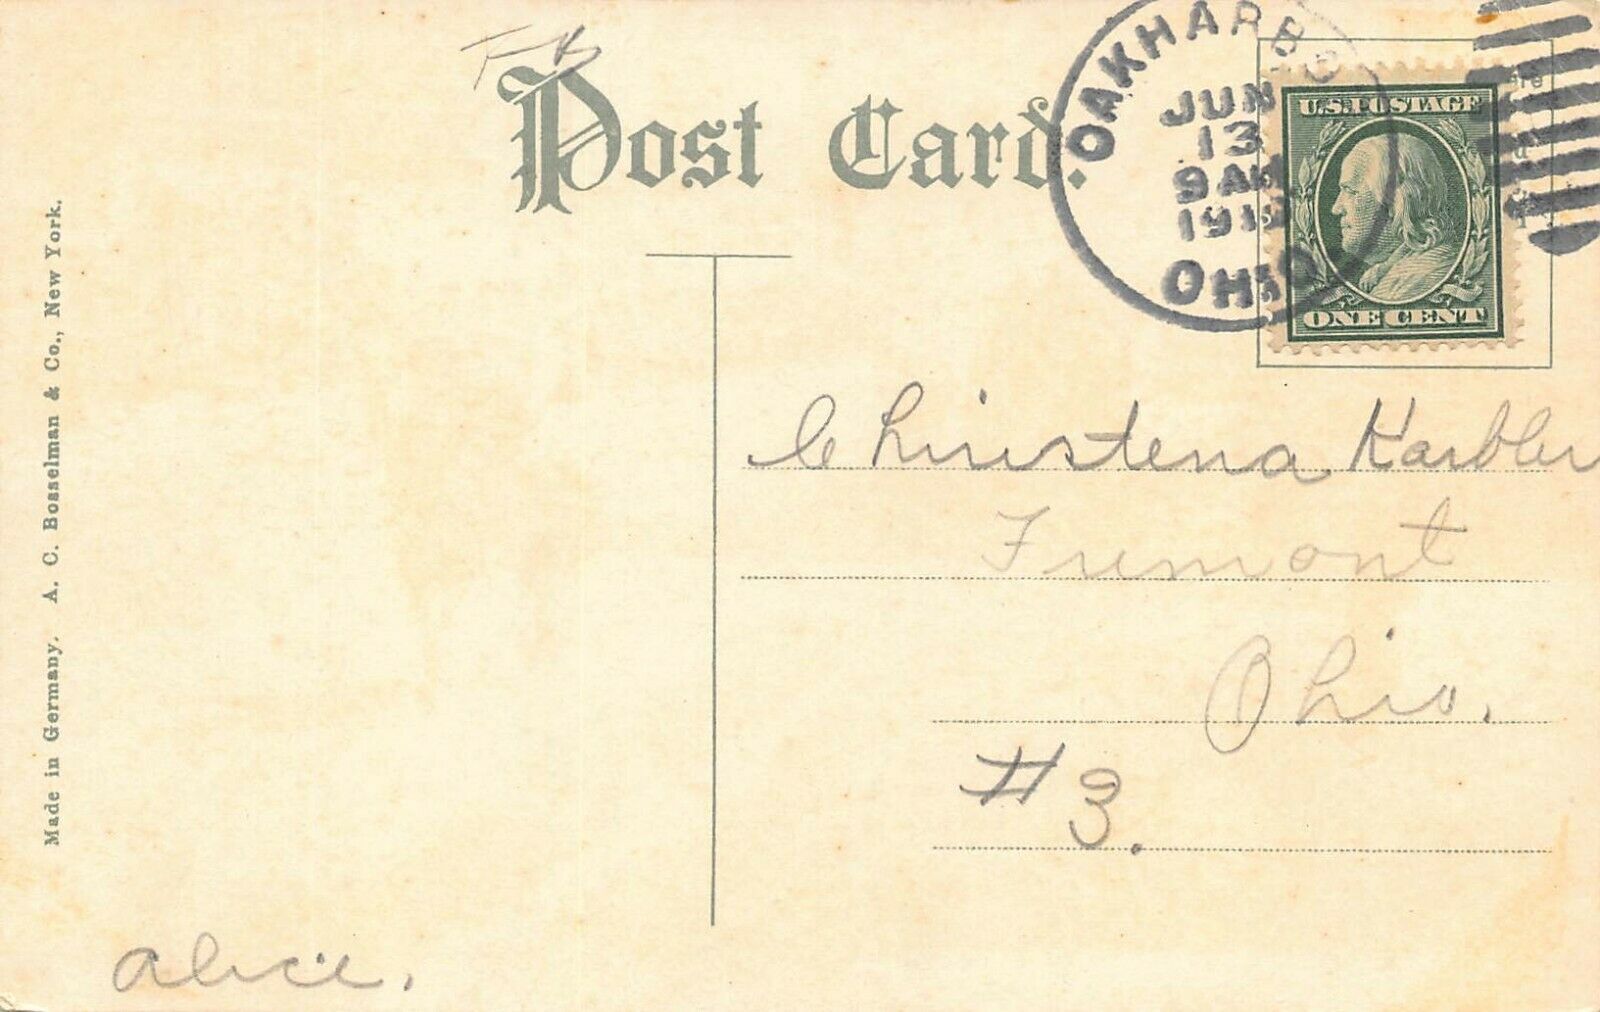 Post Card.
OAKHARBO
JUN
13
9 AM
OHIO
U.S. POSTAGE
ONE CENT
Made in Germany. A. C. Bosselman & Co., New York.
Christena Karbler
Fremont
Ohio.
#3.
alice.